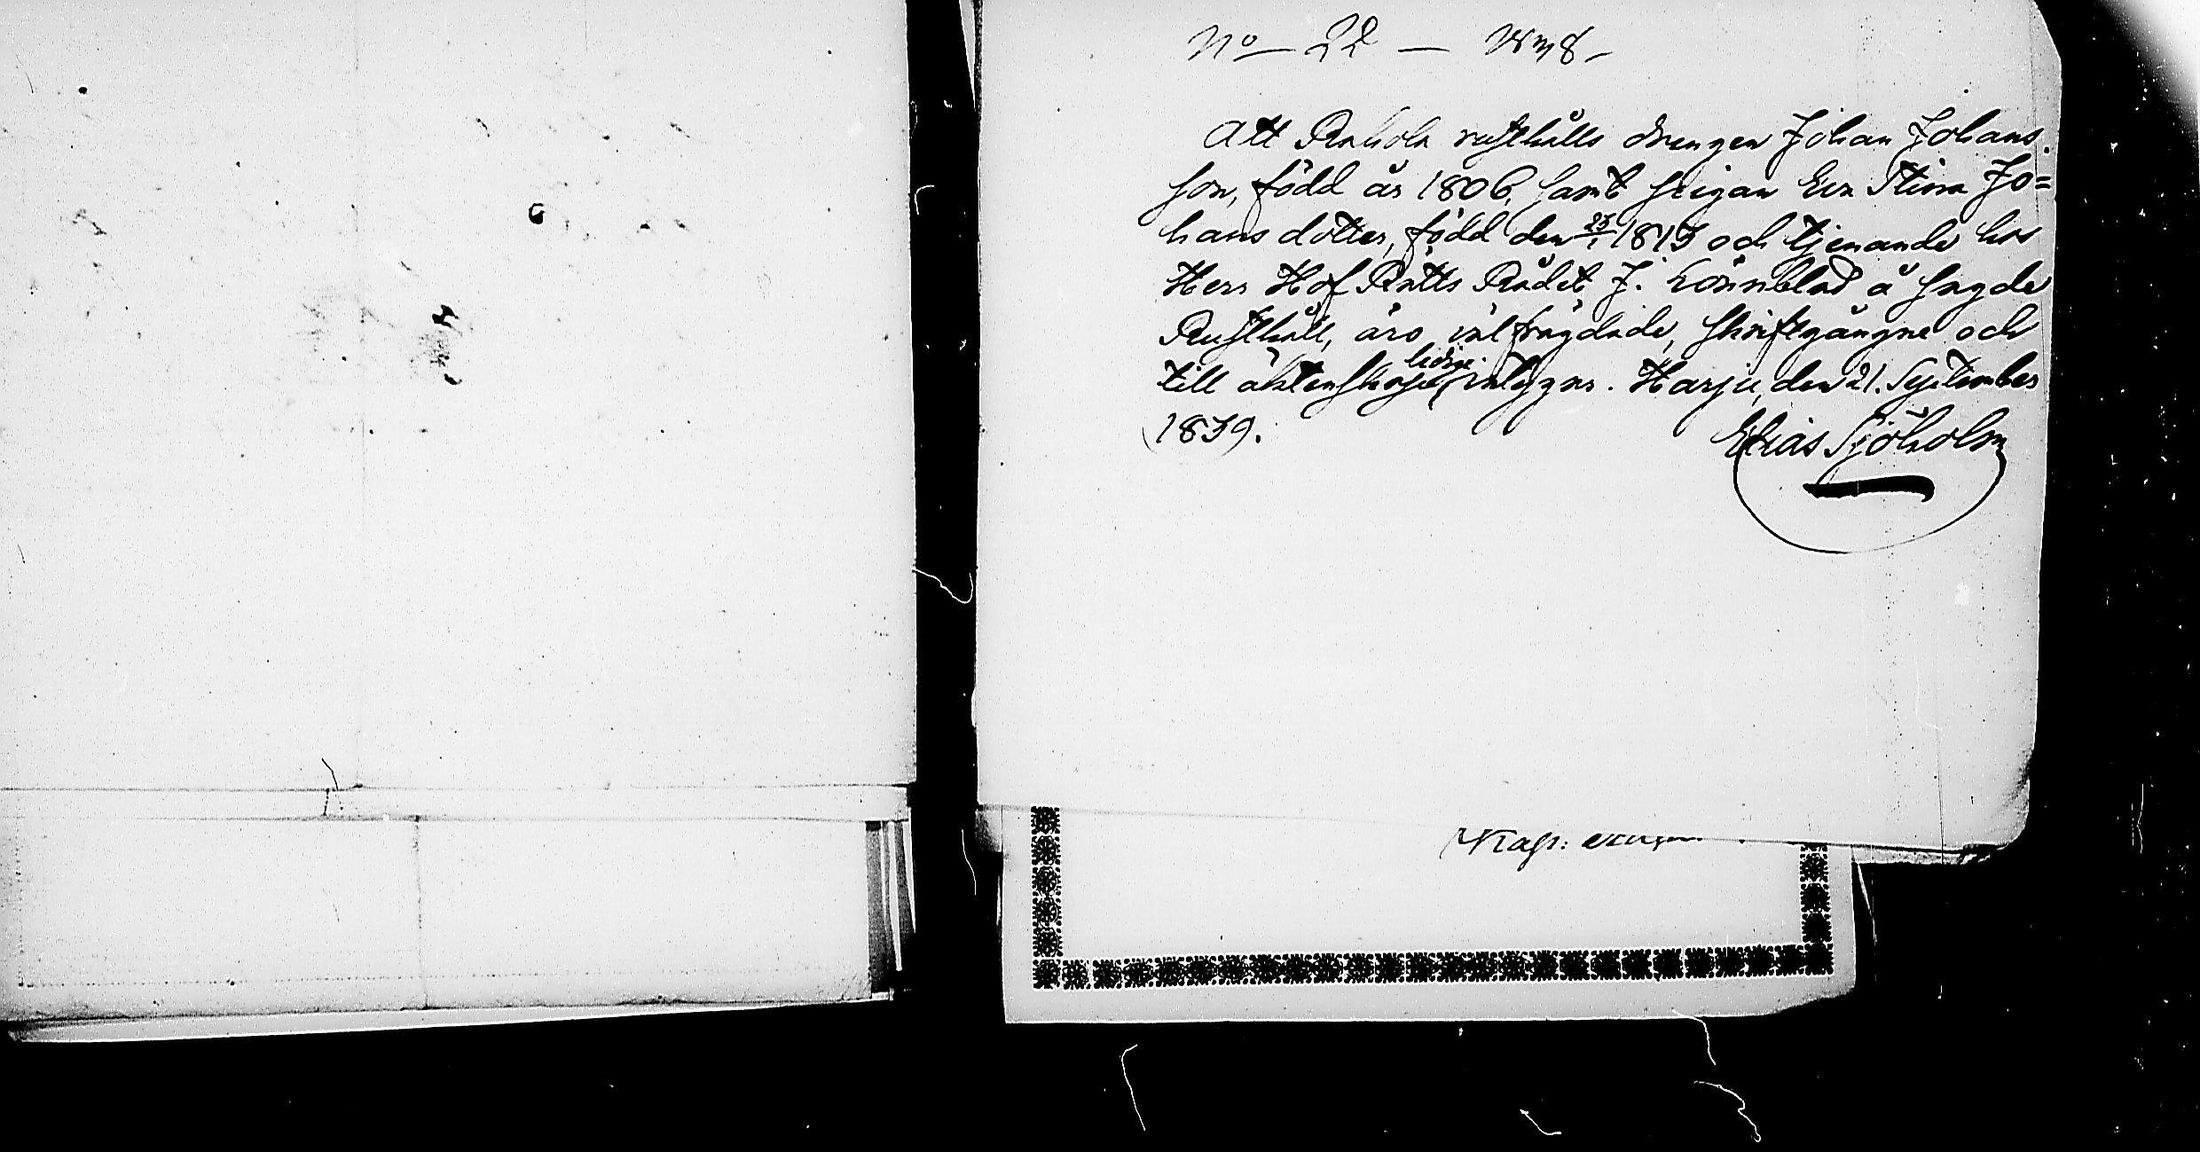 No 22 —
Att Rahola rusthålls drengen Johan Johans
son, född år 1806, samt pigan Eva Stina Jo=
hans dotter, född den 1813 och tjenande hos
Herr Hof Rätts Rådet J. Lönnblad å sagde
Rusthåll, äro välfrägdade, skriftgångne och
ledige
till äktenskap, intygas. Harju, den 21. September
1839.
Elias Sjöholm